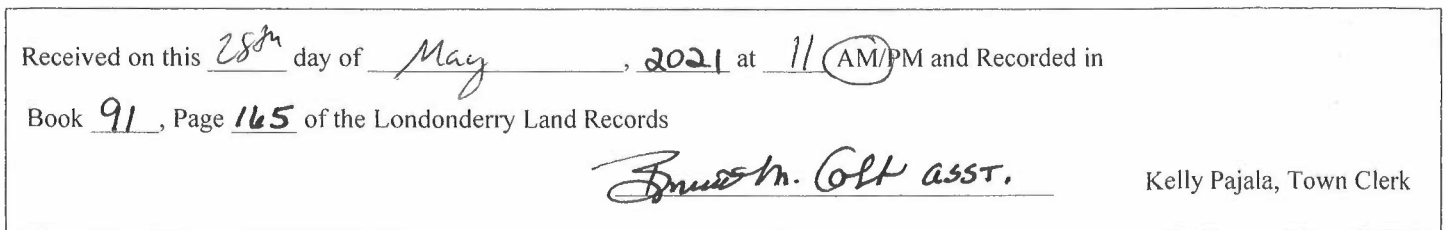 Received on this 28th day of May, 2021 at 11 AM/PM and Recorded in
Book 91, Page 165 of the Londonderry Land Records
M. Colt asst. Kelly Pajala, Town Clerk